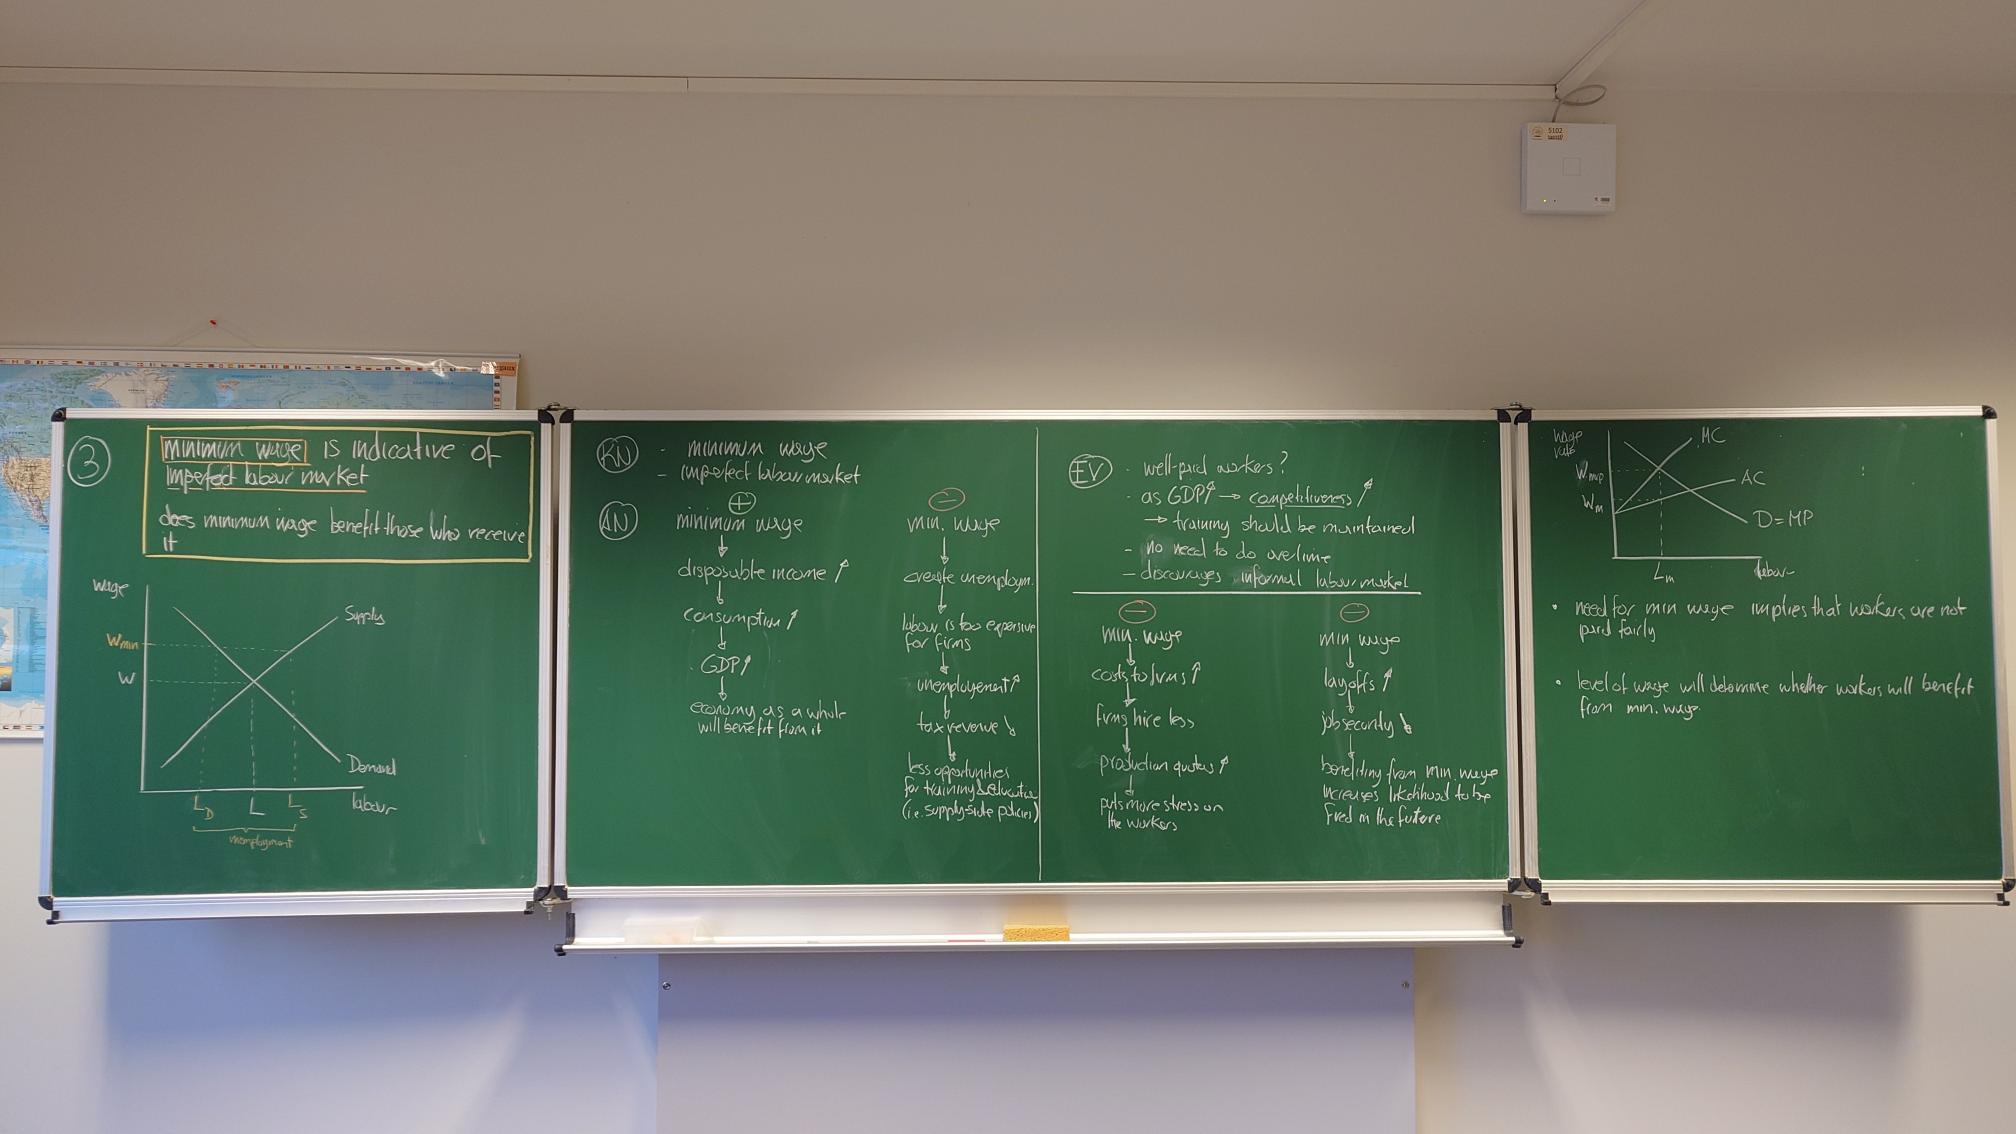 3
minimum wage is indicative of
imperfect labour market
does minimum wage benefit those who receive
it
wage
Supply
Wmin
W
Demand
LD L LS labour
unemployment
KN
- minimum wage
- imperfect labour market
AN
+
minimum wage
disposable income ↑
consumption ↑
GDP ↑
economy as a whole
will benefit from it
-
min. wage
create unemploym.
labour is too expensive
for firms
unemployement ↑
tax revenue ↓
less opportunities
for training & education
(i.e. supply-side policies)
EV
- well-paid workers?
- as GDP↑ → competitiveness ↑
→ training should be maintained
- no need to do overtime
- discourages informal labour market
-
min. wage
costs to firms ↑
firms hire less
production quotas ↑
puts more stress on
the workers
-
min wage
layoffs ↑
job security ↓
benefiting from min. wage
increases likelihood to be
fired in the future
wage
rate
MC
Wmrp
AC
Wm
D=MP
Lm labour
• need for min wage implies that workers are not
paid fairly
• level of wage will determine whether workers will benefit
from min. wage.
5102